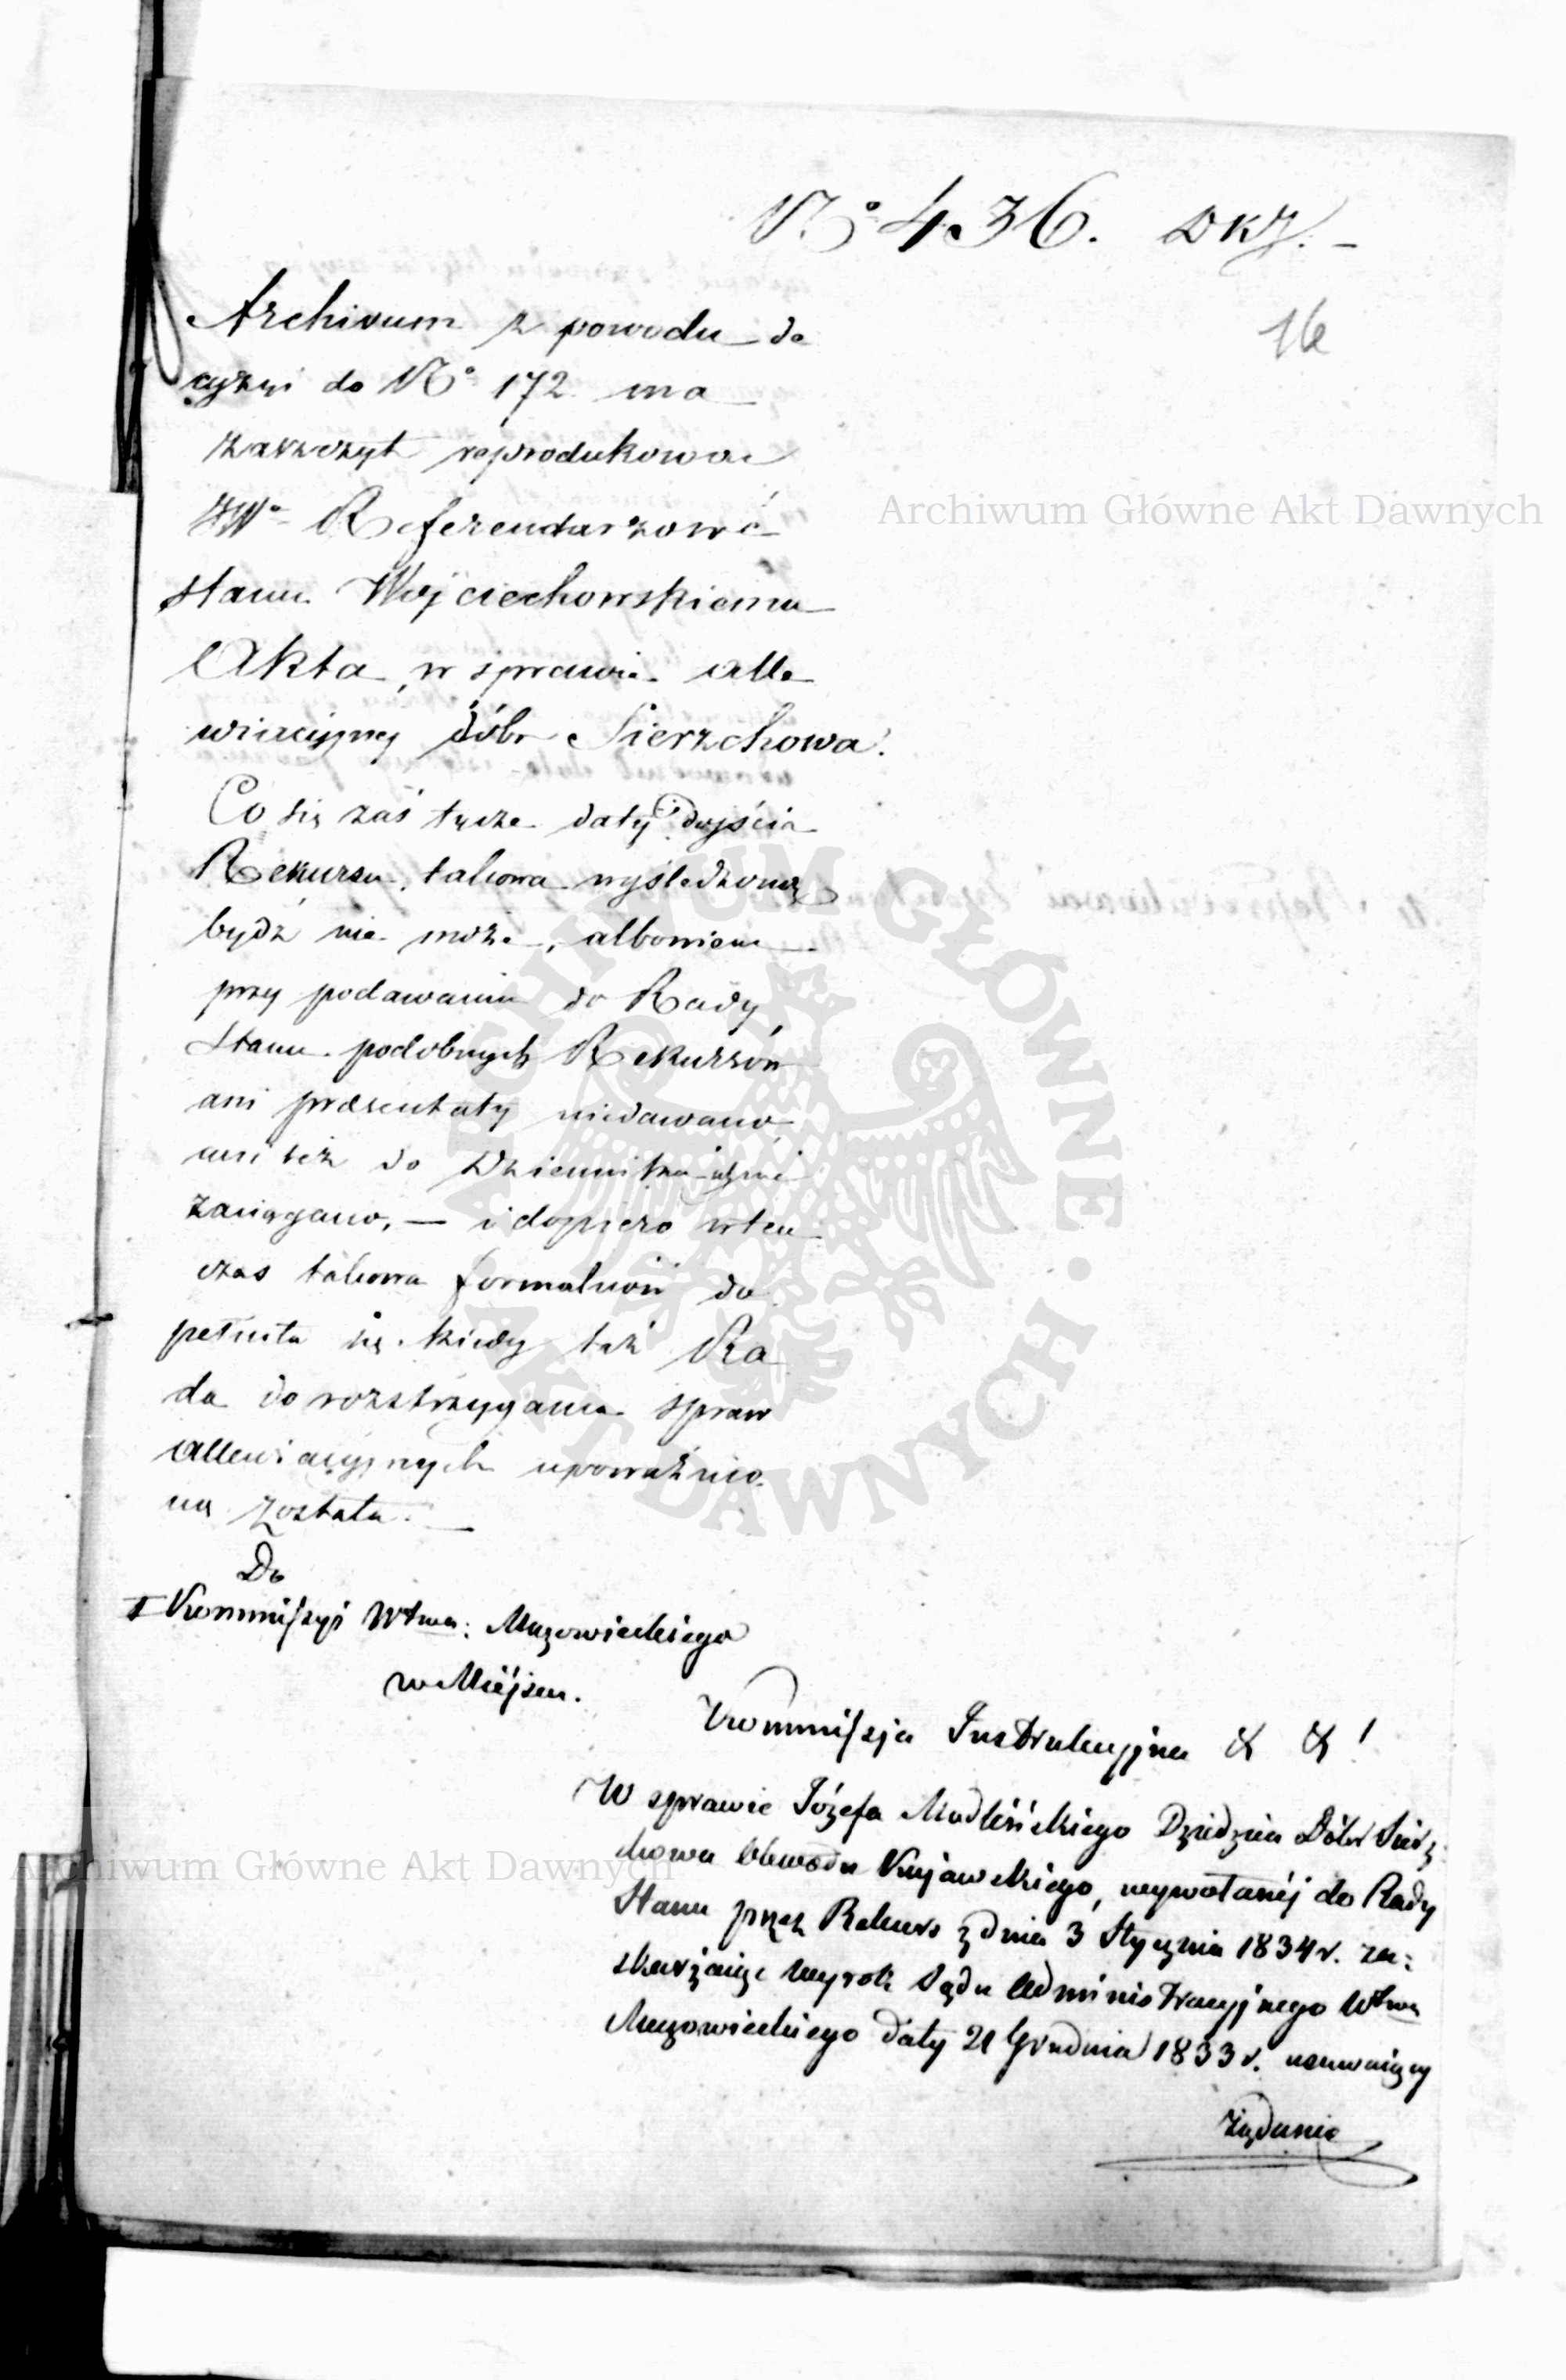 No 436. DKJ. –
16
Archivum z powodu de
cyzyi do No 172 ma
zaszczyt reprodukować
JWo Referendarzowi
Stanu Wojciechowskiemu
Akta, w sprawie alle
wiacyjnej dóbr Sierzchowa.
Co się zaś tycze daty dojścia
Rekursu, takowa wyśledzoną
bydź nie może, albowiem
przy podawaniu do Rady
Stanu podobnych Rekursów
ani prezentaty niedawano,
ani też do Dziennika
zaciągano, — i dopiero wten
czas takowa formalność do
pełniła się kiedy taż Ra
da do rozstrzygania spraw
allewiacyjnych upoważnio
ną została. —
Do
Kommissyi Wtwa: Mazowieckiego
w Miejscu.
Kommissja Instrukcyjna & & !
W sprawie Józefa Modlińskiego Dziedzica Dóbr Sierz
chowa Obwodu Kujawskiego, wywołanéj do Rady
Stanu przez Rekurs z dnia 3 Stycznia 1834 r. za:
skarżający wyrok Sądu Administracyjnego Wtwa
Mazowieckiego daty 21 Grudnia 1833 r. usuwający
żądanie
Archiwum Główne Akt Dawnych
ARCHIWUM GŁÓWNE · AKT DAWNYCH ·
Archiwum Główne Akt Dawnych